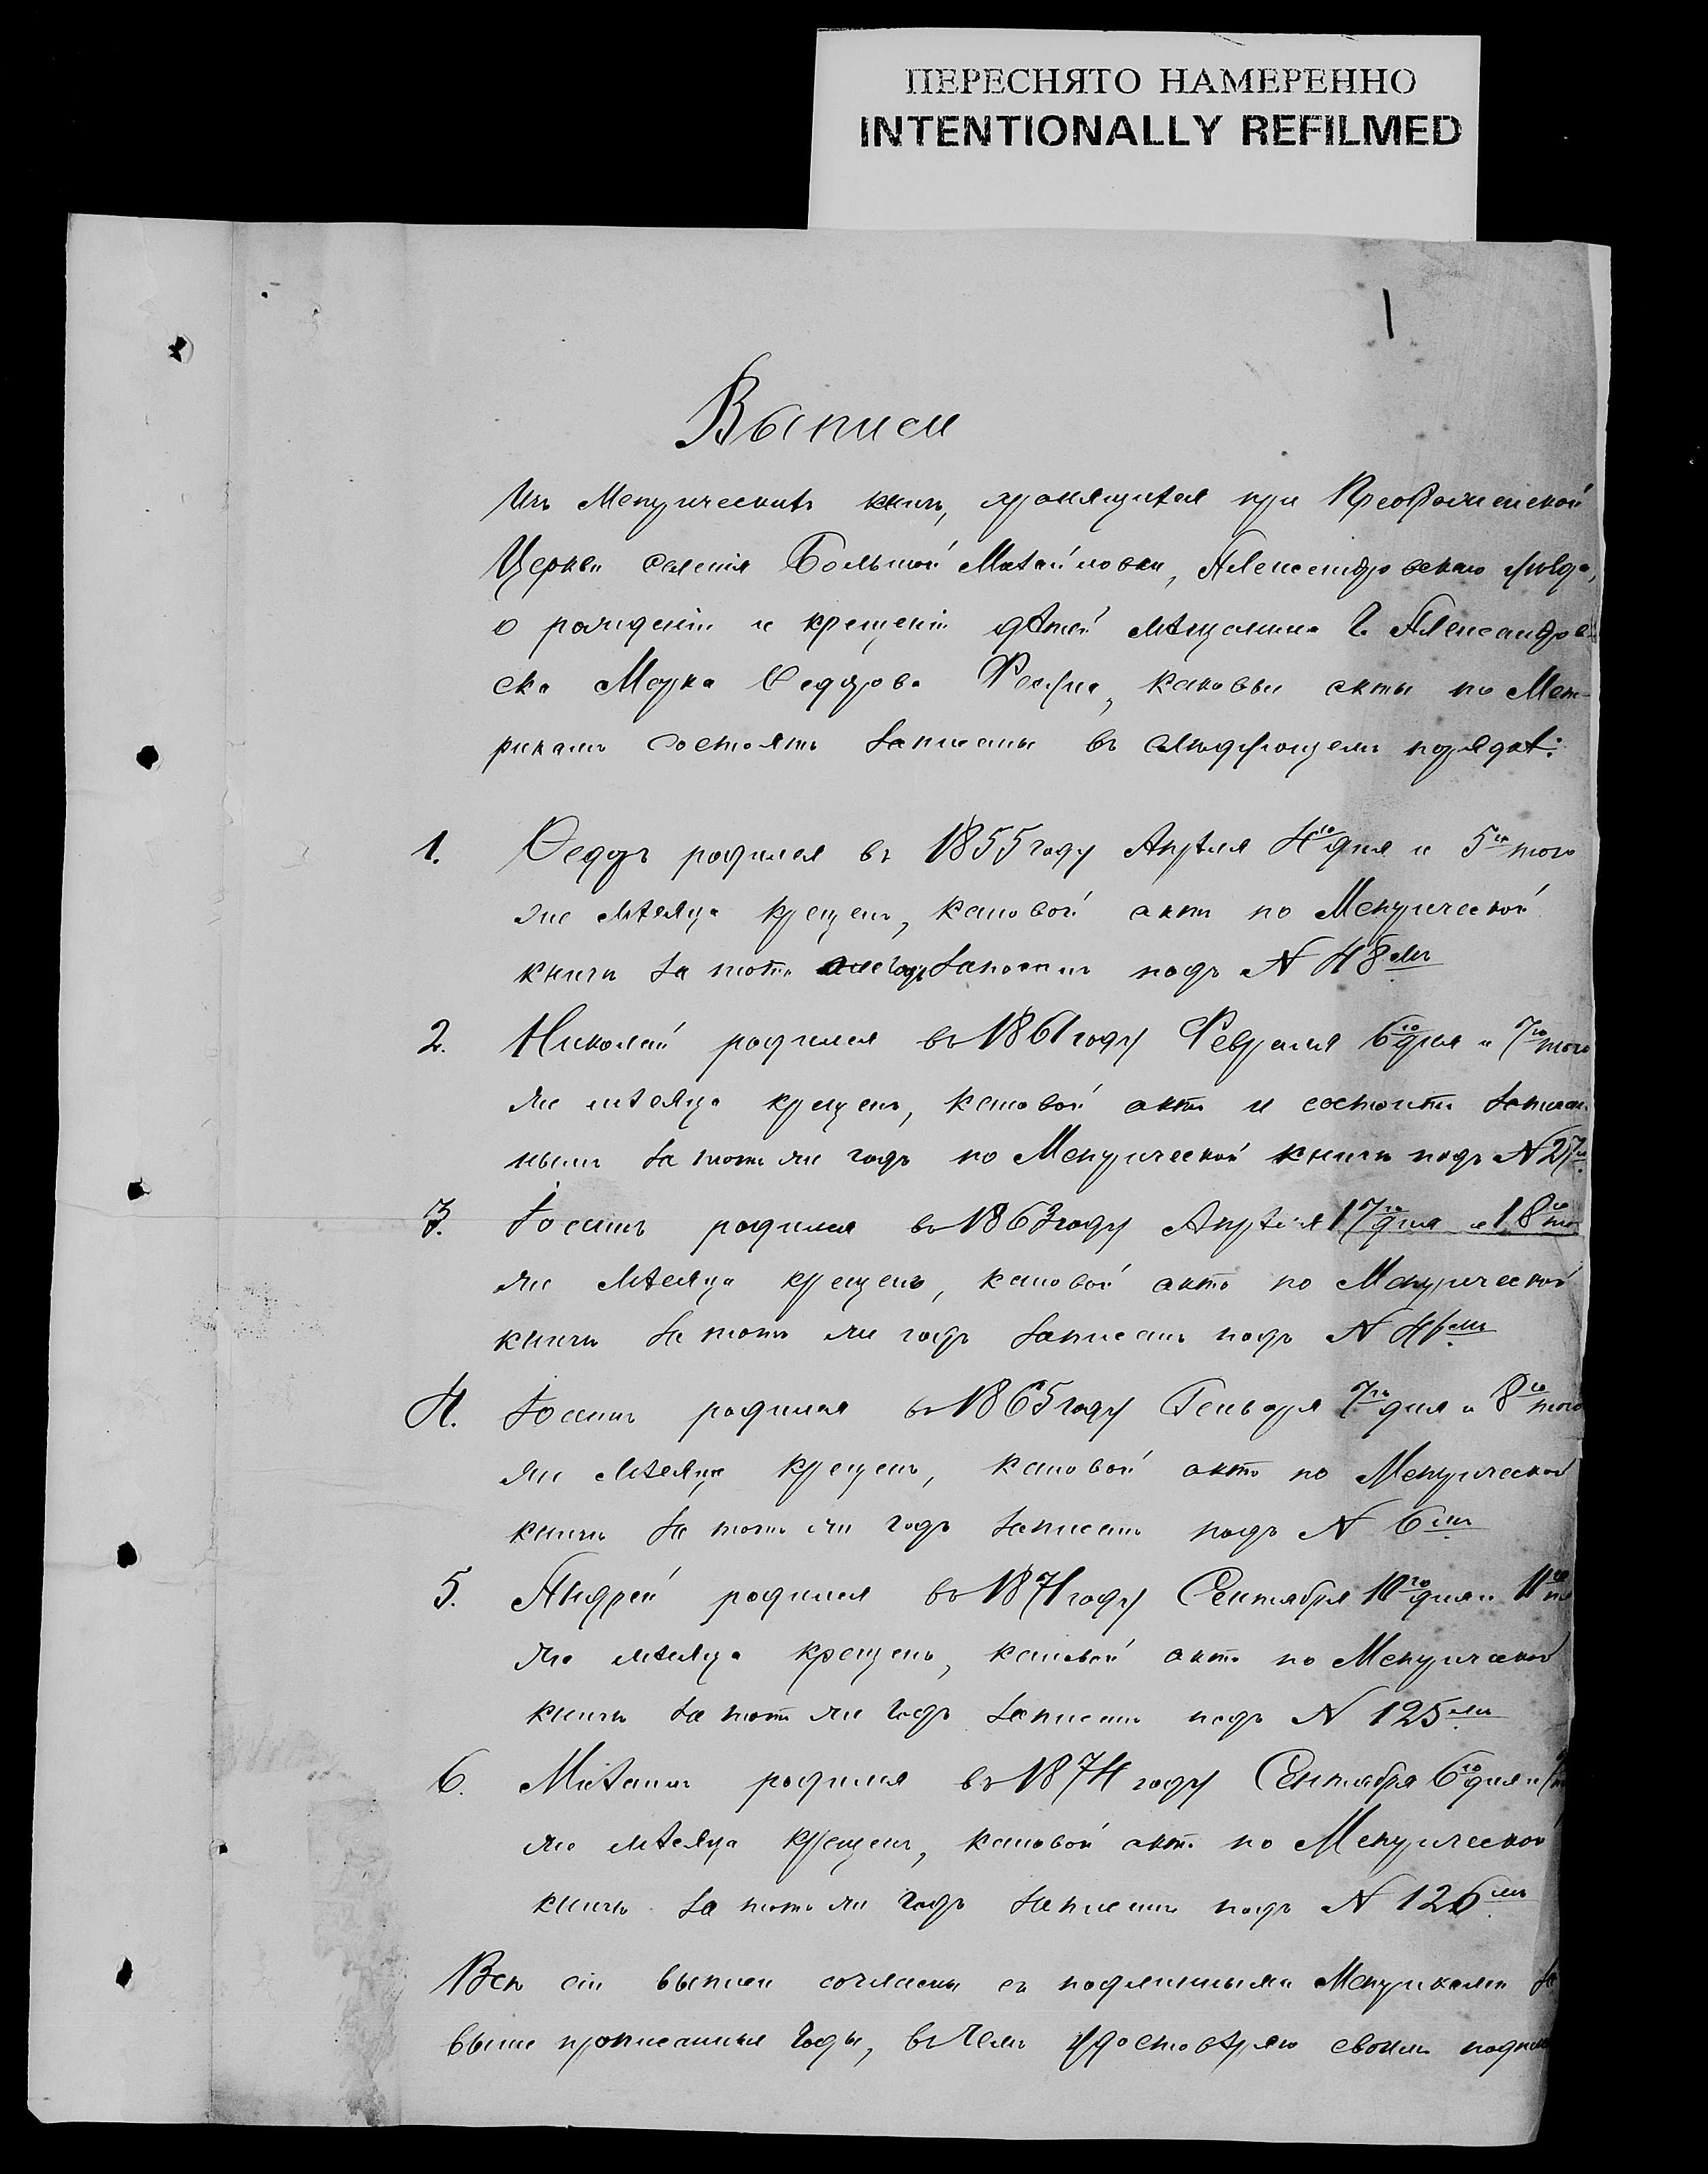 ПЕРЕСНЯТО НАМЕРЕННО
INTENTIONALLY REFILMED
1
Выписи
Изъ Метрическихъ книгъ, хранящихся при Преображенской
Церкви селенія Большой Михайловки, Александровскаго уѣзда,
о рожденіи и крещеніи дѣтей мѣщанина г. Александров-
ска Марка Ѳедорова каковые акты по Мет-
рикамъ состоятъ записаны въ слѣдующемъ порядкѣ:
1. Ѳедоръ родился въ 1855 году Апрѣля 4го дня и 5го того
же мѣсяца крещенъ, каковой актъ по Метрической
книгѣ за тотъ же годъ записанъ подъ N 48мъ
2. Николай родился въ 1861 году Февраля 6го дня и 7го того
же мѣсяца крещенъ, каковой актъ и состоитъ записан-
нымъ за тотъ же годъ по Метрической книгѣ подъ N 27
3. Іоаннъ родился въ 1863 году Апрѣля 17го дня и 18го
же мѣсяца крещенъ, каковой актъ по Метрической
книгѣ за тотъ же годъ записанъ подъ N 41мъ
4. Іоаннъ родился въ 1865 году Генваря 7го дня и 8го того
же мѣсяца крещенъ, каковой актъ по Метрической
книгѣ за тотъ же годъ записанъ подъ N 6мъ
5. Андрей родился въ 1871 году Сентября 10го дня и 11го
же мѣсяца крещенъ, каковой актъ по Метрической
книгѣ за тотъ же годъ записанъ подъ N 125мъ
6. Михаилъ родился въ 1874 году Сентября 6го дня и
же мѣсяца крещенъ, каковой актъ по Метрической
книгѣ за тотъ же годъ записанъ подъ N 126мъ
Всѣ сіи выписи согласны съ подлинными Метриками за
выше прописанные годы, въ чемъ удостовѣряю своимъ